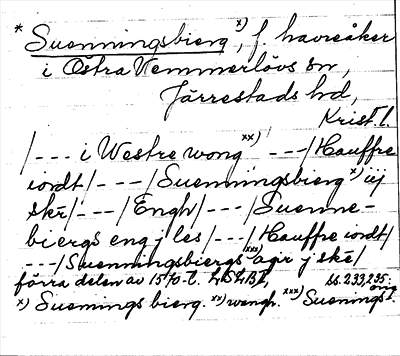 * Suenningsbierg x), f. havreåker
i Östra Vemmerlövs sn,
Järrestads hd,
Krist. l.
/--- i Westre wong xx) ---/ Hauffre
iordt /---/ Suenningsbierg x) uj
skr /---/ Engh /---/ Suenne-
biergs eng j les /---/ Hauffre iordt /
---/ Suenningsbiergs xxx) agir j ske /
förra delen av 1570-t. LSLBI, ss. 233, 235.
x) Suenings bierg. xx) wongh. xxx) Suenings-